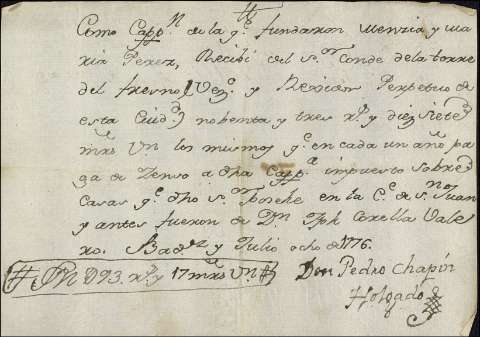 Como Capp.n de la q.e fundaron Menzia y Ma
ria Perez, Recibi del s.or Conde dela torre
del fresno (Vez.o y Rexidor Perpetuo de
esta Ciud.d) nobenta y tres r.s y diez siete
mrs Vn los mismos q.e en cada un año pa
ga de Zenso a dha Capp.a impuesto sobre
Casas q.e dho s.or Posehe en la C.e de s.n Juan
y antes fueron de D.n Jph Corella Vale
ro. Bad.z y Julio ocho de 1776.
# Sn D93. r.s y 17 mrs Vn #
Don Pedro Chapin
Holgado